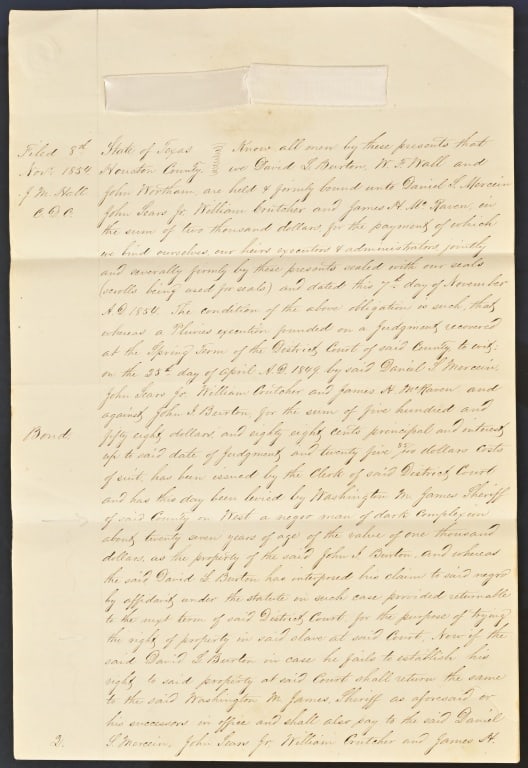 Filed 8th
Nov. 1854
J. M. Hall
C. D. C.
State of Texas
Houston County.
Know all men by these presents that
we David L Burton, W. F Wall and
John Wortham, are held & firmly bound unto Daniel S. Mercein
John Sears Jr. William Crutcher and James H. McKaven, in
the sum of two thousand dollars, for the payment of which
we bind ourselves, our heirs, executors & administrators, jointly
and severally firmly by these presents sealed with our seals
(scrolls being used for seals) and dated this 7th day of November
A.D. 1854. The condition of the above obligation is such, that
whereas a Pluries execution founded on a Judgment, recovered
at the Spring Term of the District Court of said County to wit:
on the 28th day of April A.D. 1849 by said Daniel S. Mercein,
John Sears Jr. William Crutcher and James H. McKaven and
against John I Burton, for the sum of five hundred and
Bond.
fifty eight dollars and eighty eight cents principal and interest
up to said date of Judgment, and twenty five dollars Costs
of suit, has been issued by the Clerk of said District Court
and has this day been levied by Washington M. James Sheriff
of said County on West a negro man of dark Complexion
about twenty seven years of age of the value of one thousand
dollars, as the property of the said John I. Burton. And whereas
the said David L Burton has interposed his claim to said negro
by affidavit, under the statute in such case provided returnable
to the next term of said District Court, for the purpose of trying
the right of property in said slave at said Court, Now if the
said David L Burton in case he fails to establish his
right to said property at said Court shall return the same
to the said Washington M. James, Sheriff as aforesaid, or
his successors in office and shall also pay to the said Daniel
2.
S. Mercein, John Sears Jr, William Crutcher and James H.